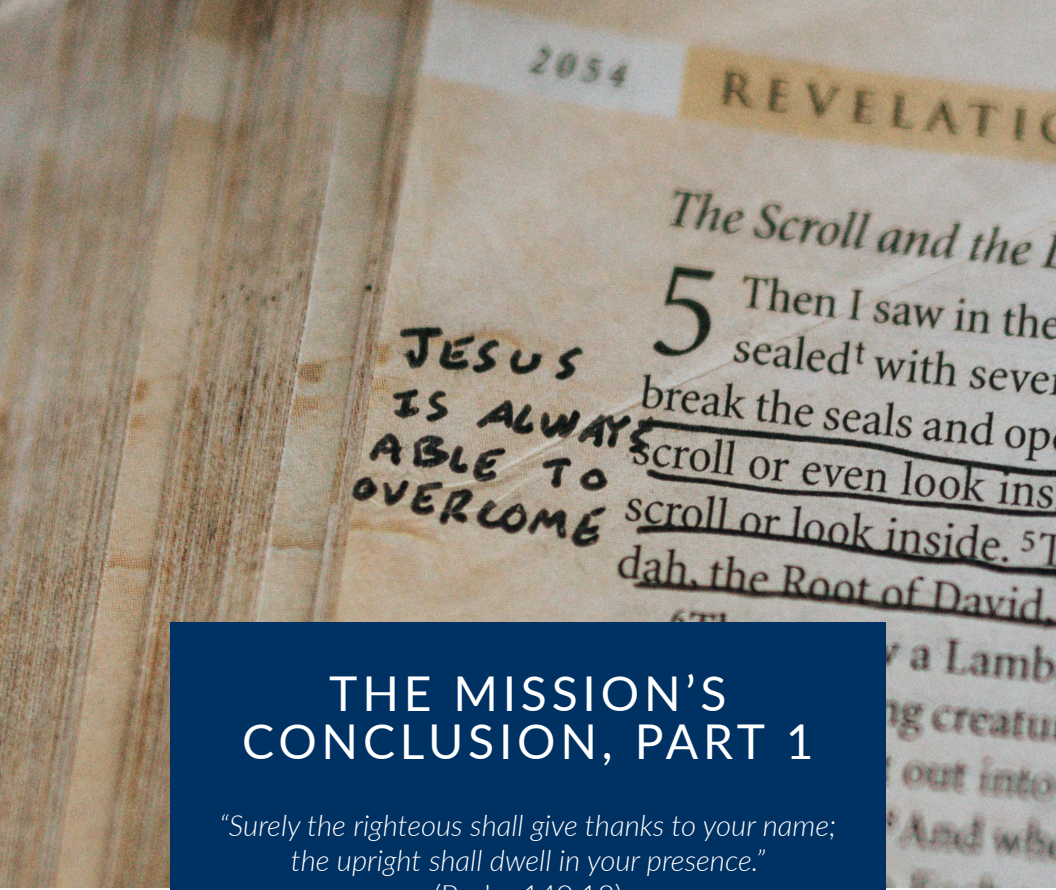 2054
REVELATIO
The Scroll and the
5 Then I saw in the
sealedᵗ with seve
break the seals and ope
scroll or even look ins
scroll or look inside. ⁵T
dah, the Root of David,
a Lamb
ng creatu
out into
And whe
JESUS
IS ALWAYS
ABLE TO
OVERCOME
THE MISSION’S
CONCLUSION, PART 1
“Surely the righteous shall give thanks to your name;
the upright shall dwell in your presence.”